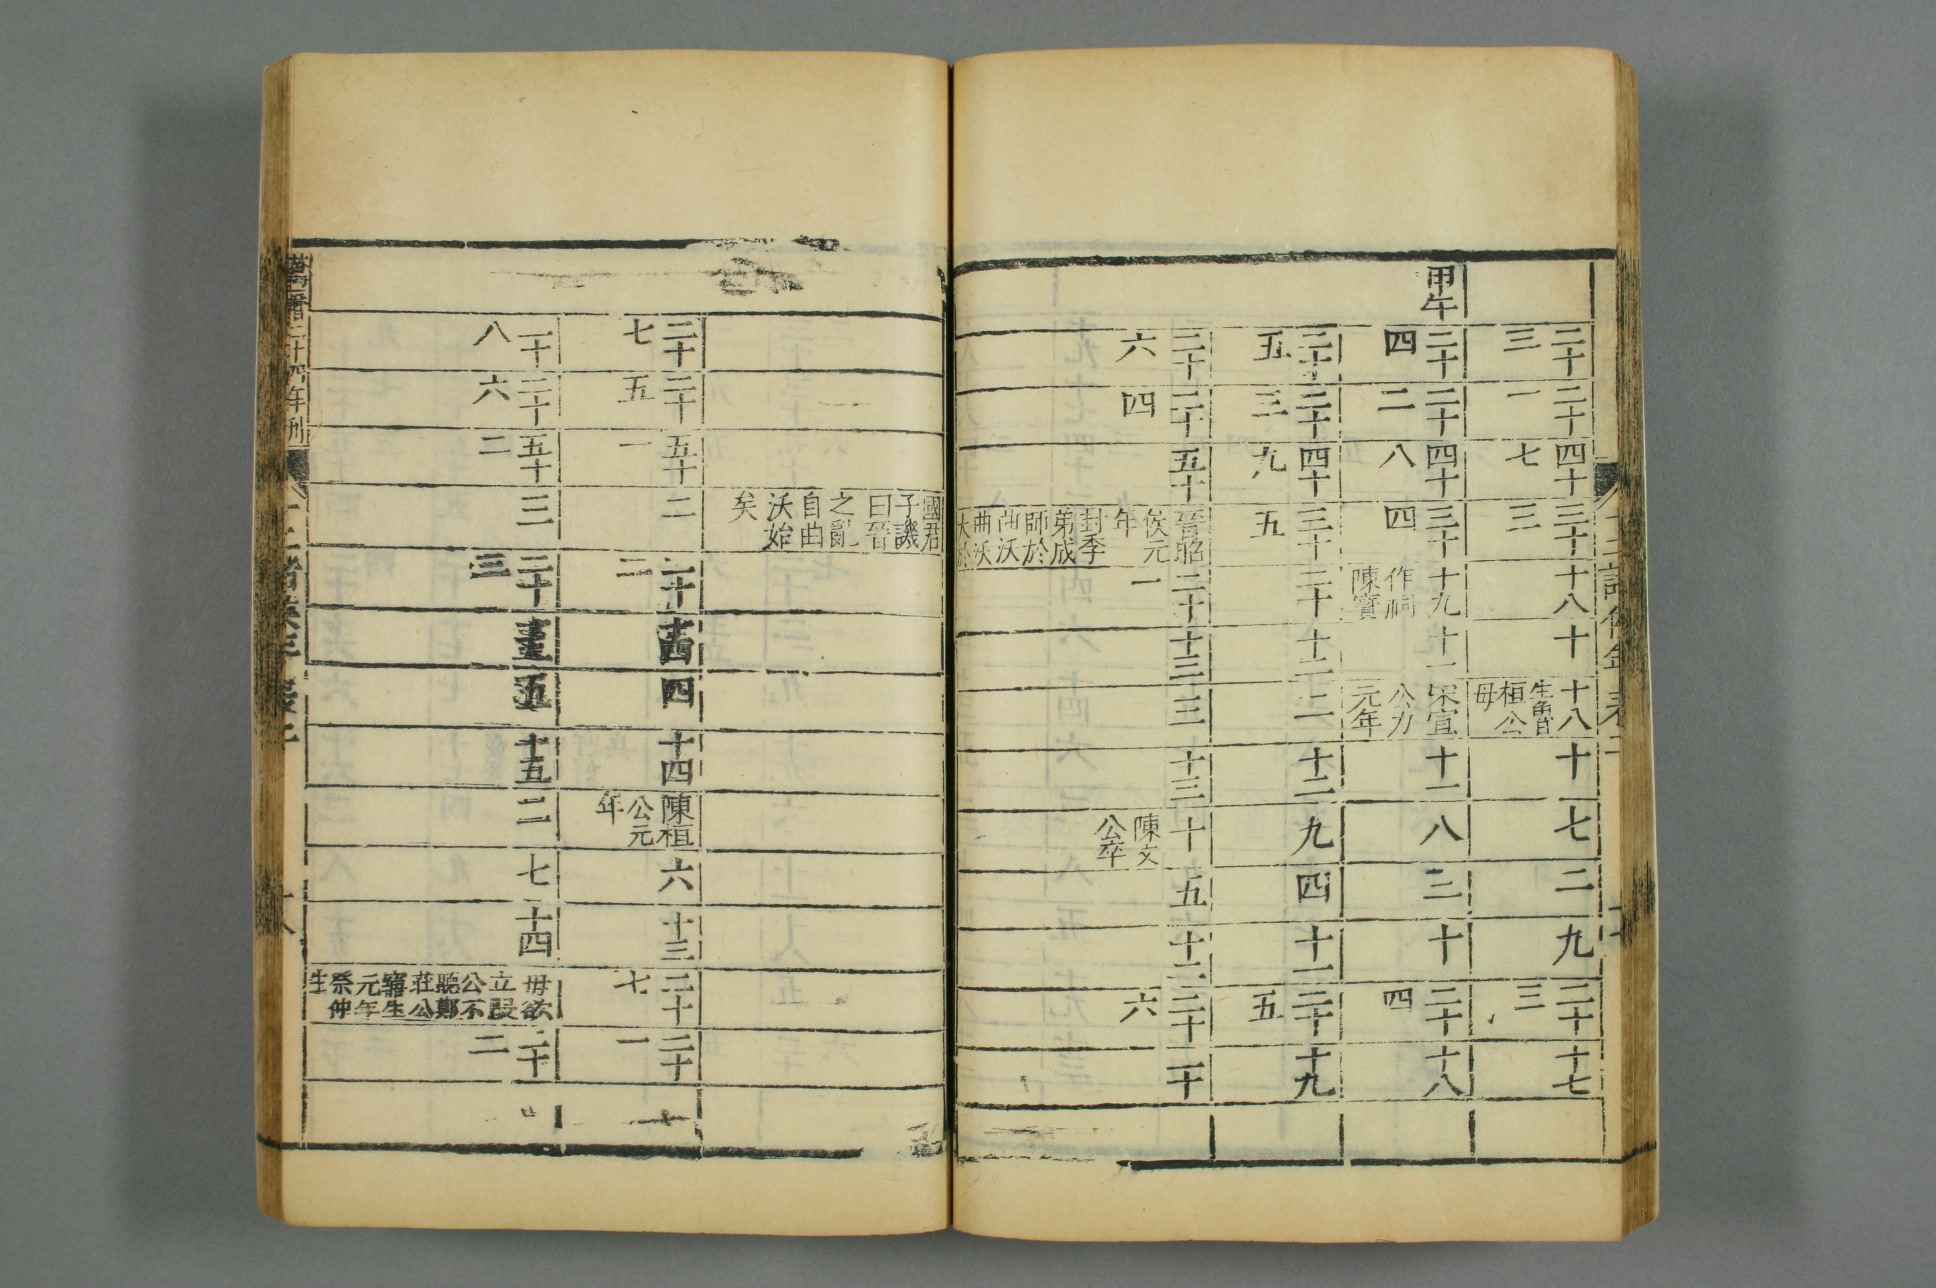 二十三
二十一
四十七
三十三
十八
十
十八
生魯
桓公
母
十
七
二
九
二十三
十七
甲午
二十四
二十二
四十八
三十四
十九
作祠
陳寶
十一
宋宣
公力
元年
十一
八
三
十
二十四
十八
二十五
二十三
四十九
三十五
二十
十二
二
十二
九
四
十一
二十五
十九
二十六
二十四
五十
晉昭
侯元
年
封季
弟成
師於
曲沃
曲沃
大於
二十一
十三
三
十三
十
陳文
公卒
五
十二
二十六
二十
國君
子譏
曰晉
之亂
自曲
沃始
矣
二十七
二十五
五十一
二
二十二
十四
四
十四
陳桓
公元
年
六
十三
二十七
二十一
二十八
二十六
五十二
三
二十三
十五
五
十五
二
七
十四
母欲
立段
公不
聽鄭
莊公
寤生
元年
祭仲
生
二十二
萬曆二十四年刊